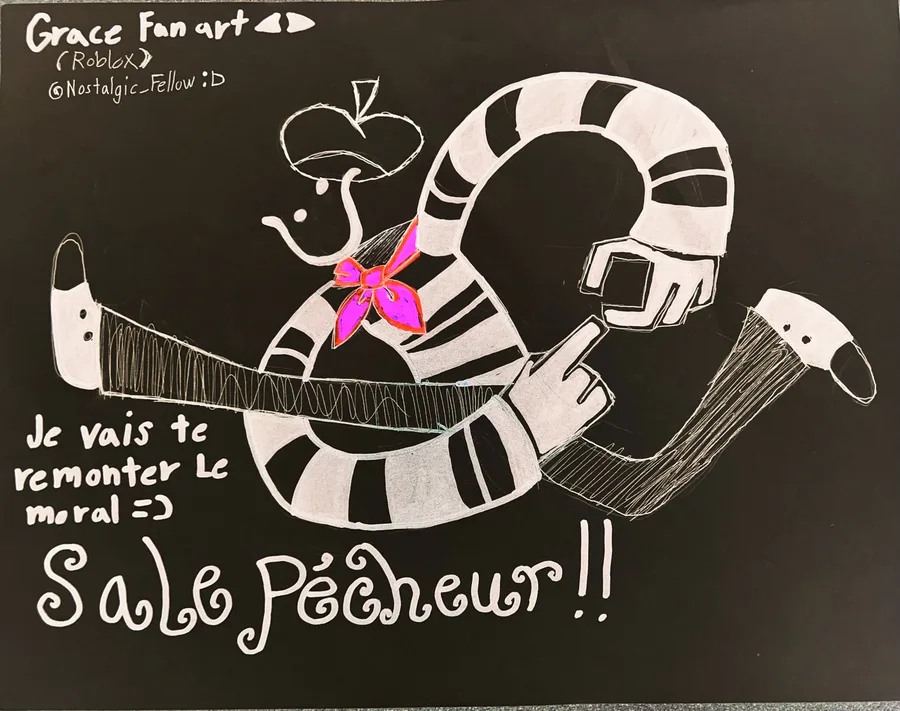 Grace Fan art
(Roblox)
@Nostalgic_Fellow :D
Je vais te
remonter Le
moral =)
Sale pécheur!!